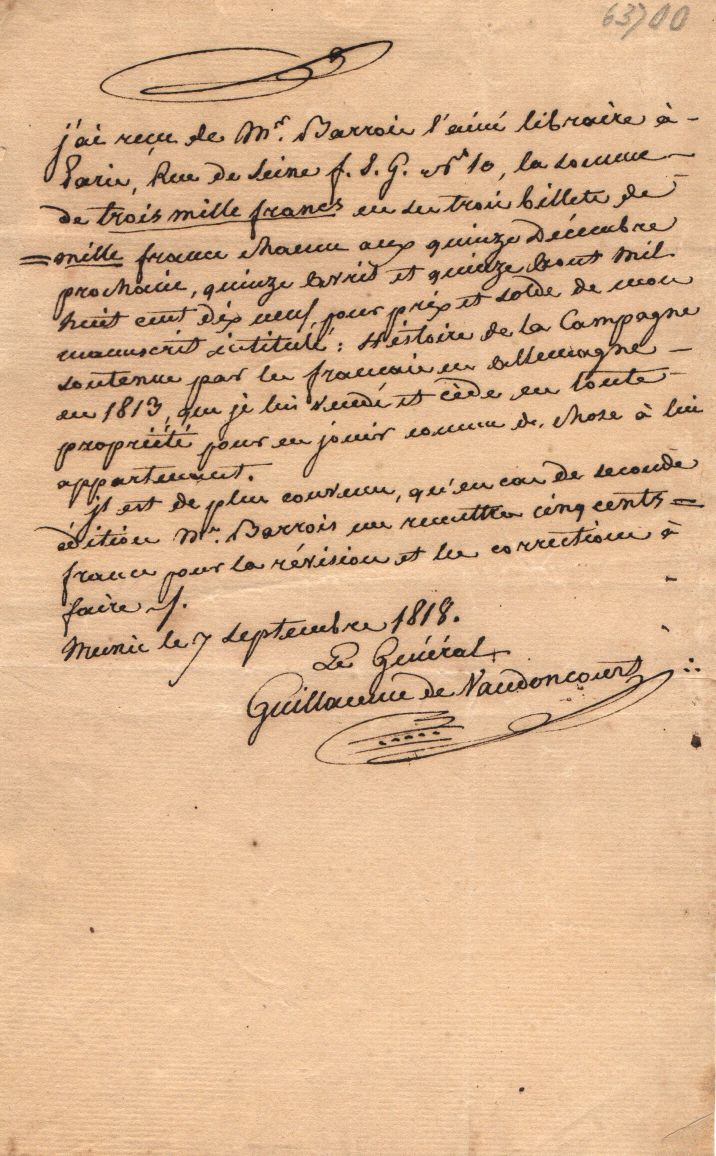 63700
j'ai reçu de Mr. Barrois l'ainé libraire à -
Paris, Rue de Seine f. S. G. No. 10, la somme -
de trois mille francs en ses trois billets de
= mille francs chacun aux quinze Décembre
prochain, quinze Avril et quinze Aout mil
huit cent dix neuf, pour prix et solde de mon
manuscrit intitulé: Histoire de la Campagne
soutenue par les francais en Allemagne -
en 1813, que je lui vends et cède en toute -
propriété pour en jouir comme de chose à lui
appartenant.
il est de plus convenu, qu'en cas de seconde
édition Mr. Barrois me remettra cinq cents =
francs pour la révision et les corrections à
faire ./.
Munic le 7 septembre 1818.
Le Général
Guillaume de Vaudoncourt